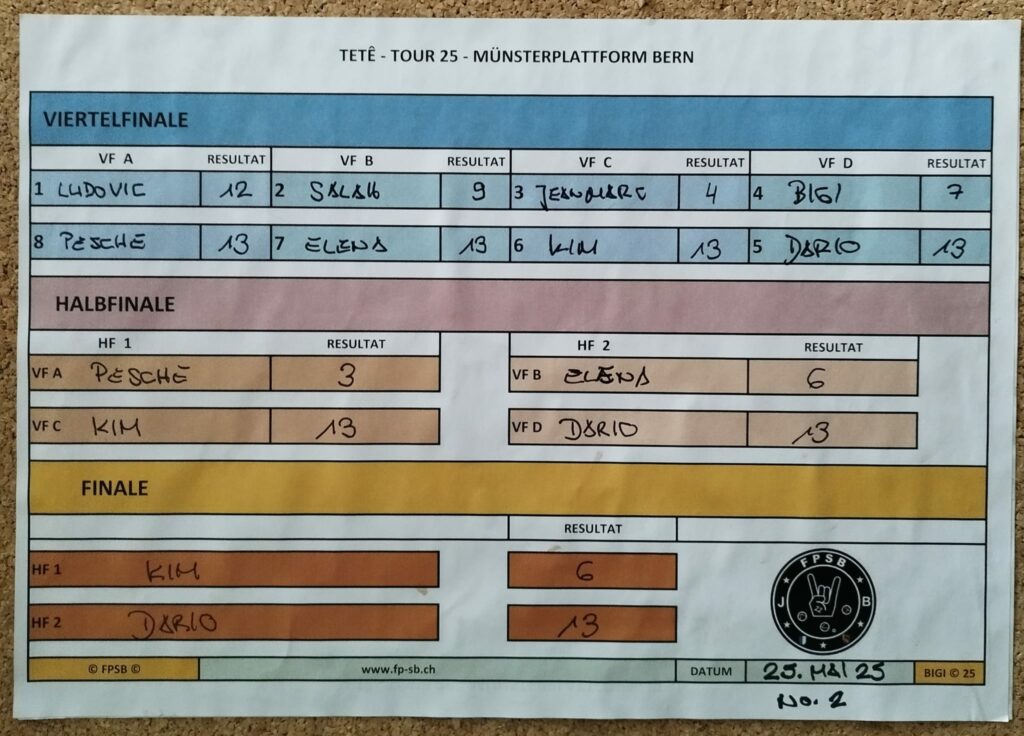 TETÊ - TOUR 25 - MÜNSTERPLATTFORM BERN
VIERTELFINALE
VF A RESULTAT VF B RESULTAT VF C RESULTAT VF D RESULTAT
1 LUDOVIC 12 2 SALAH 9 3 JEANMARC 4 4 BIGI 7
8 PESCHE 13 7 ELENA 13 6 KIM 13 5 DARIO 13
HALBFINALE
HF 1 RESULTAT HF 2 RESULTAT
VF A PESCHE 3 VF B ELENA 6
VF C KIM 13 VF D DARIO 13
FINALE
RESULTAT
HF 1 KIM 6
HF 2 DARIO 13
FPSB
J B
© FPSB © www.fp-sb.ch DATUM 25. MAI 25 BIGI © 25
NO. 2